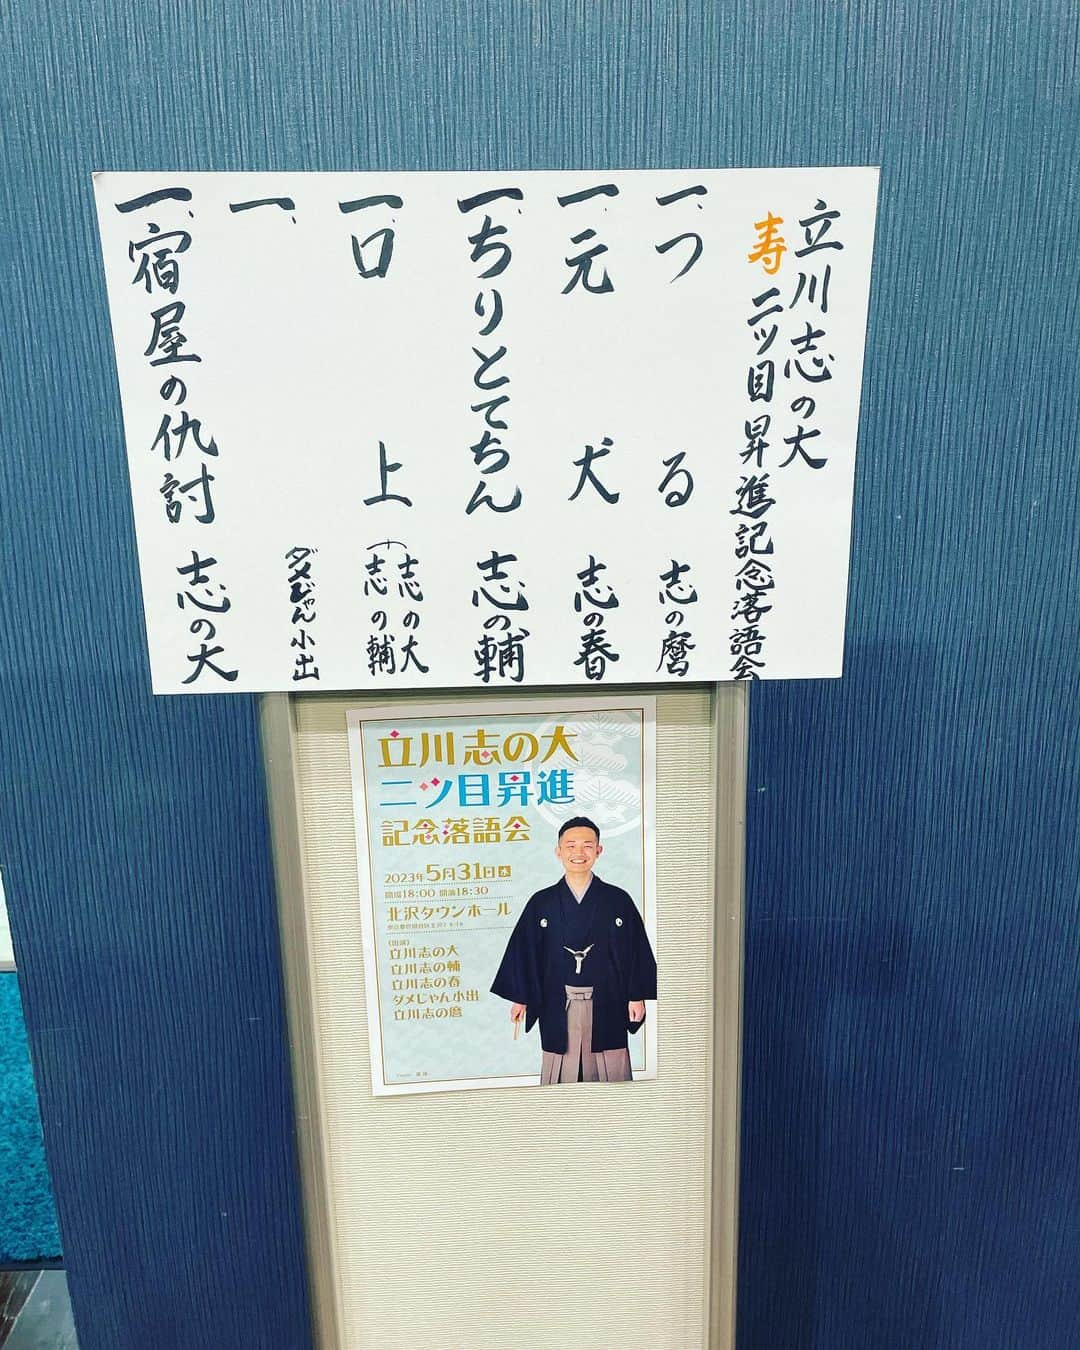 立川志の大
寿 二ツ目昇進記念落語会
一、つる 志の麿
一、元犬 志の春
一、ちりとてちん 志の輔
一、口上 (志の大
志の輔
一、 ダメじゃん小出
一、宿屋の仇討 志の大
立川志の大
二ツ目昇進
記念落語会
2023年5月31日水
開場18:00 開演18:30
北沢タウンホール
〈出演〉
立川志の大
立川志の輔
立川志の春
ダメじゃん小出
立川志の麿